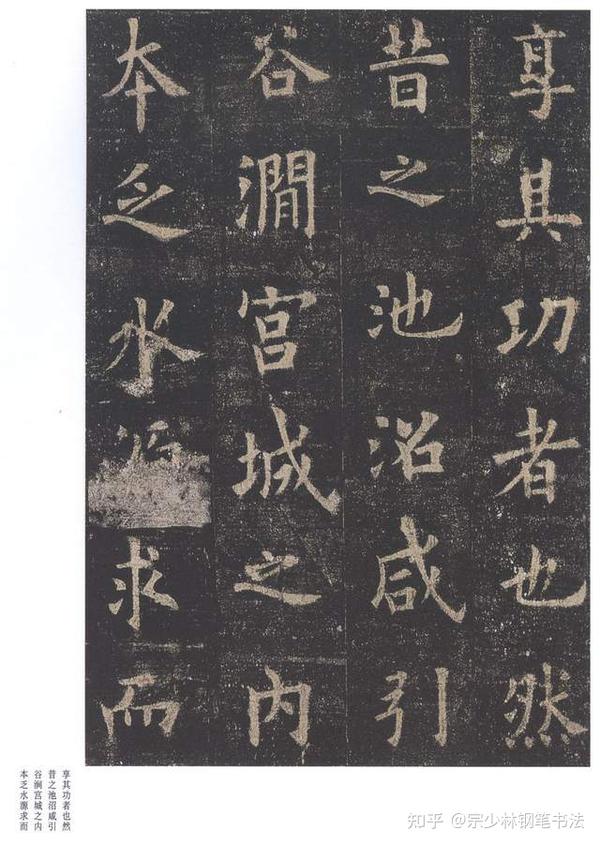 享其功者也然
昔之池沼咸引
谷澗宮城之内
本乏水求而
享其功者也然
昔之池沼咸引
谷涧宫城之内
本乏水源求而
知乎 @宗少林钢笔书法